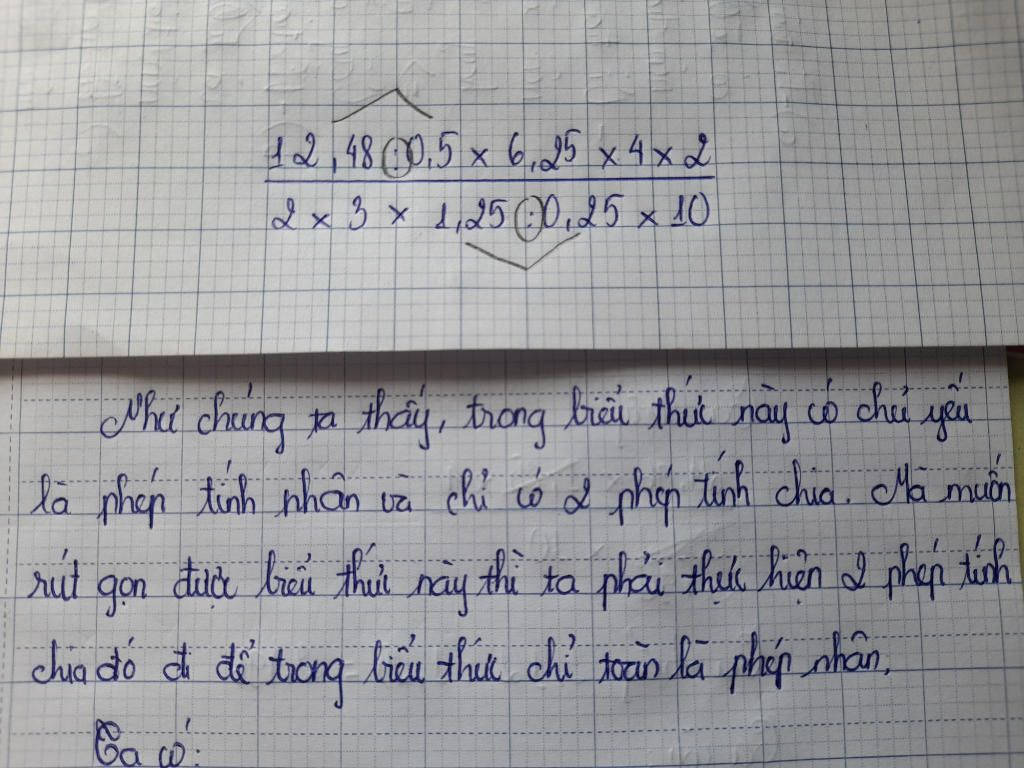 12,48 : 0,5 × 6,25 × 4 × 2
2 × 3 × 1,25 : 0,25 × 10
Như chúng ta thấy, trong biểu thức này có chủ yếu
là phép tính nhân và chỉ có 2 phép tính chia. Mà muốn
rút gọn được biểu thức này thì ta phải thực hiện 2 phép tính
chia đó đi để trong biểu thức chỉ toàn là phép nhân.
Ta có: